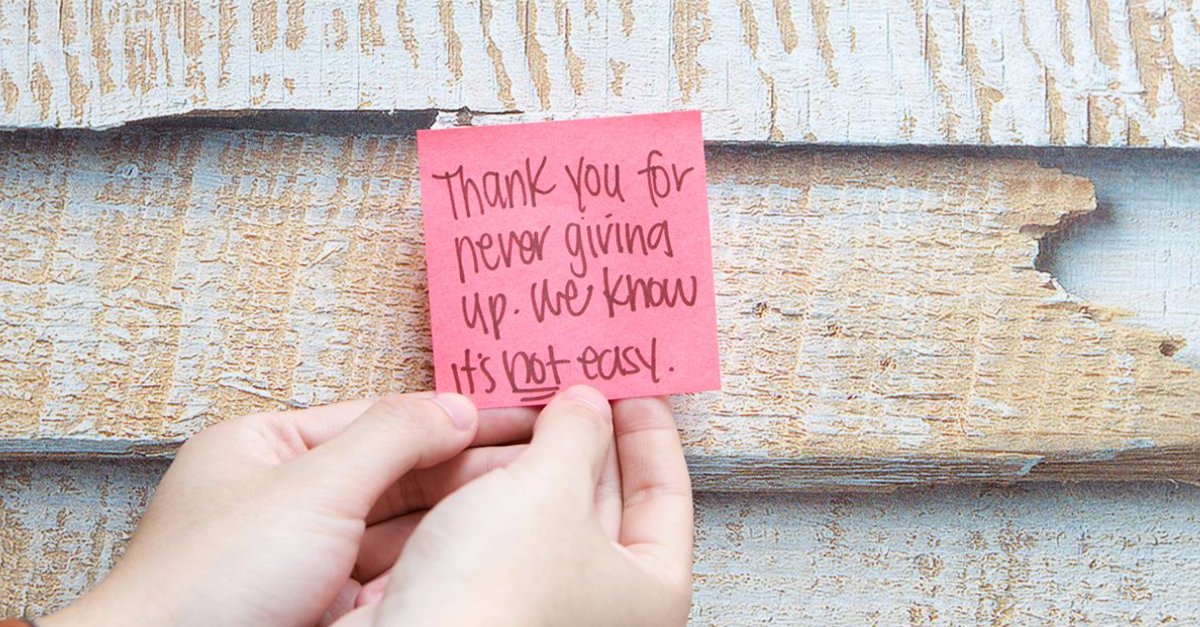 Thank you for
never giving
up. We know
it's not easy.